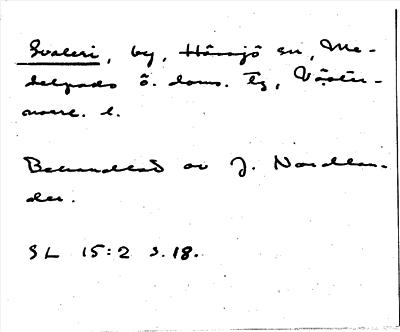 Svaleri, by, Håsjö sn, Me-
delpads ö. doms. tg, Väster-
norrl. l.
Behandlad av J. Nordlan-
der.
SL 15:2 s.18.